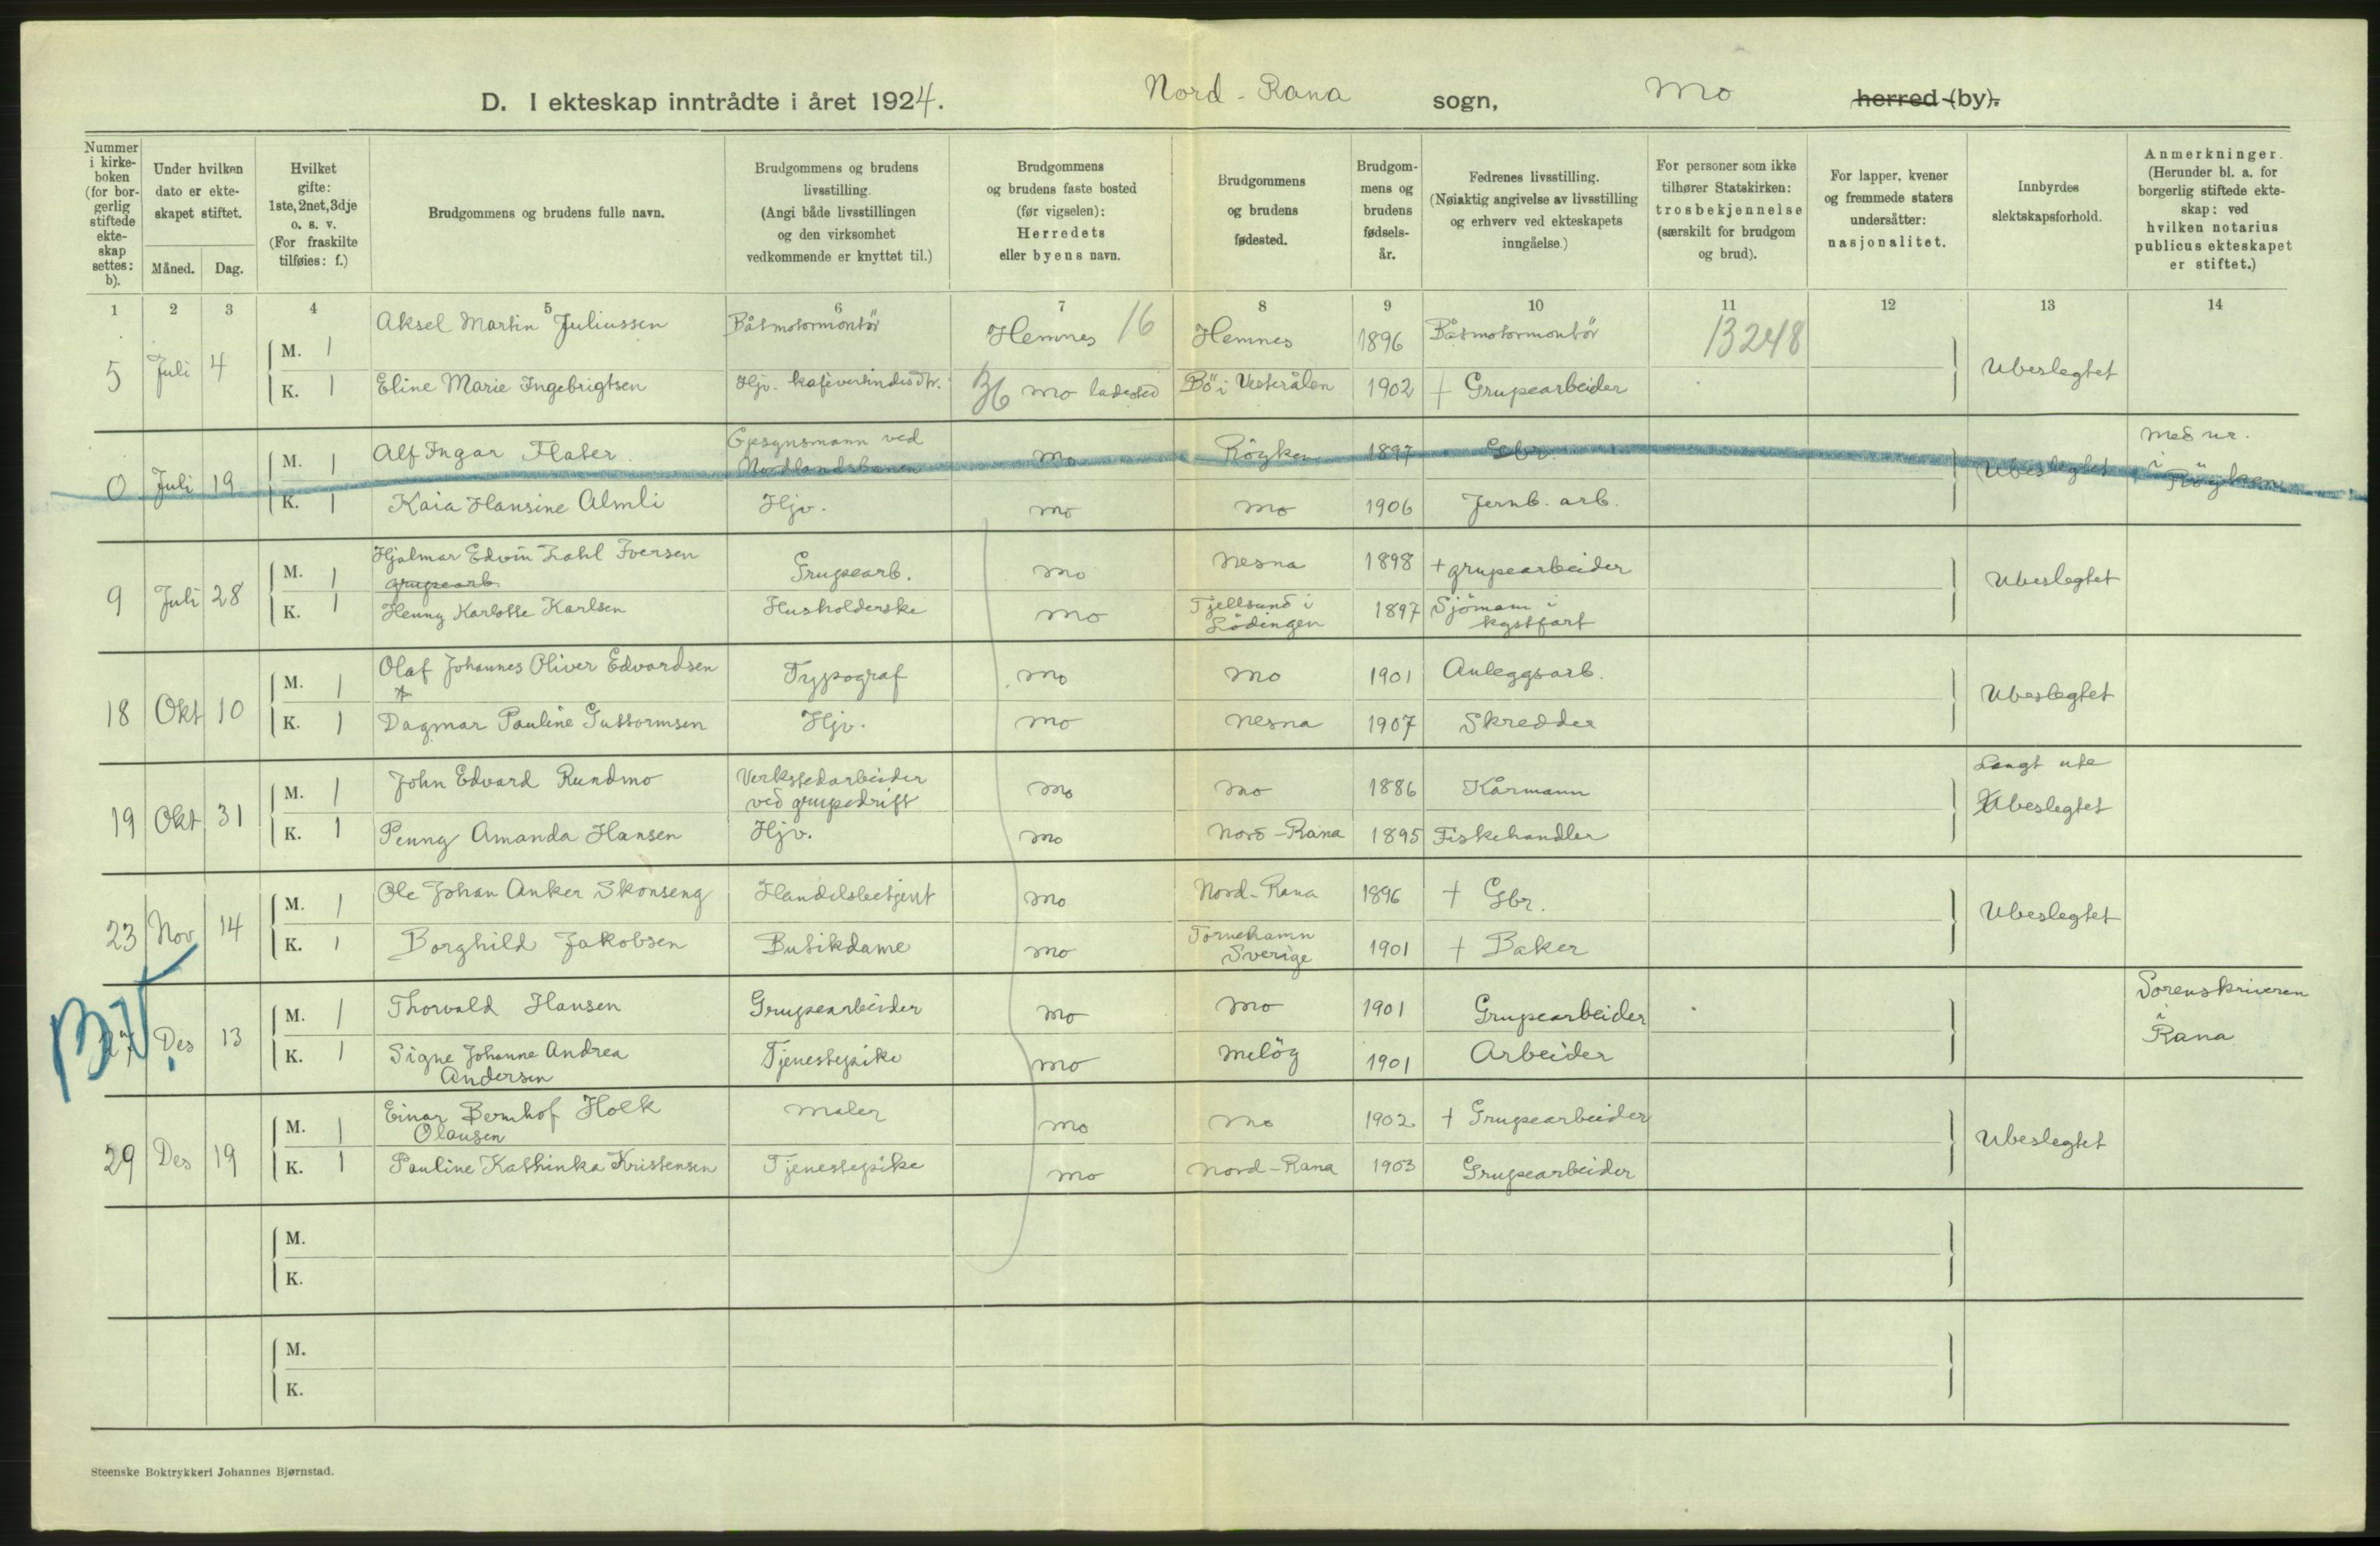 D. I ekteskap inntrådte i året 1924. Nord-Rana sogn, Mo herred (by).
Nummer i kirkeboken (for borgerlig stiftede ekteskap settes: b).
Under hvilken dato er ekteskapet stiftet.
Måned. Dag.
Hvilket gifte: 1ste, 2net, 3dje o. s. v. (For fraskilte tilføies: f.)
Brudgommens og brudens fulle navn.
Brudgommens og brudens livsstilling. (Angi både livsstillingen og den virksomhet vedkommende er knyttet til.)
Brudgommens og brudens faste bosted (før vigselen): Herredets eller byens navn.
Brudgommens og brudens fødested.
Brudgommens og brudens fødselsår.
Fedrenes livsstilling. (Nøiaktig angivelse av livsstilling og erhverv ved ekteskapets inngåelse.)
For personer som ikke tilhører Statskirken: trosbekjennelse (særskilt for brudgom og brud).
For lapper, kvener og fremmede staters undersåtter: nasjonalitet.
Innbyrdes slektskapsforhold.
Anmerkninger. (Herunder bl. a. for borgerlig stiftede ekteskap: ved hvilken notarius publicus ekteskapet er stiftet.)
1 2 3 4 5 6 7 8 9 10 11 12 13 14
5 Juli 4 M. 1 Aksel Martin Juliussen Båtmotormontör Hemnes 16 Hemnes 1896 Båtmotormontör 13248 Ubeslegtet
K. 1 Eline Marie Ingebrigtsen Hjv. kafévertindes dtr. Mo ladested Bö i Vesterålen 1902 + Grupearbeider
0 Juli 19 M. 1 Alf Ingar Flater Opsynsmann ved Nordlandsbanen Mo Röyken 1897 Gbr. Ubeslegtet med nr. i Röyken
K. 1 Kaia Hansine Almli Hjv. Mo Mo 1906 Jernb. arb.
9 Juli 28 M. 1 Hjalmar Edvin Zahl Iversen Grupearb. Mo Nesna 1898 + grupearbeider Ubeslegtet
grupearb.
K. 1 Henny Karlotte Karlsen Husholderske Mo Tjellsund i Lödingen 1897 Sjömann i kystfart
18 Okt 10 M. 1 Olaf Johannes Oliver Edvardsen Typograf Mo Mo 1901 Anleggsarb. Ubeslegtet
K. 1 Dagmar Pauline Guttormsen Hjv. Mo Nesna 1907 Skredder
19 Okt 31 M. 1 John Edvard Rundmo Verkstedarbeider ved grupedrift Mo Mo 1886 Kårmann Langt ute Ubeslegtet
K. 1 Penny Amanda Hansen Hjv. Mo Nord-Rana 1895 Fiskehandler
23 Nov 14 M. 1 Ole Johan Anker Skonseng Handelsbetjent Mo Nord-Rana 1896 + Gbr. Ubeslegtet
K. 1 Borghild Jakobsen Butikdame Mo Tornehamn Sverige 1901 + Baker
Des 13 M. 1 Thorvald Hansen Grupearbeider Mo Mo 1901 Grupearbeider Sorenskriveren i Rana
K. 1 Signe Johanne Andrea Andersen Tjenestepike Mo Melöy 1901 Arbeider
29 Des 19 M. 1 Einar Bernhof Holk Olausen Maler Mo Mo 1902 + Grupearbeider Ubeslegtet
K. 1 Pauline Kathinka Kristensen Tjenestepike Mo Nord-Rana 1903 Grupearbeider
M.
K.
M.
K.
Steenske Boktrykkeri Johannes Bjørnstad.